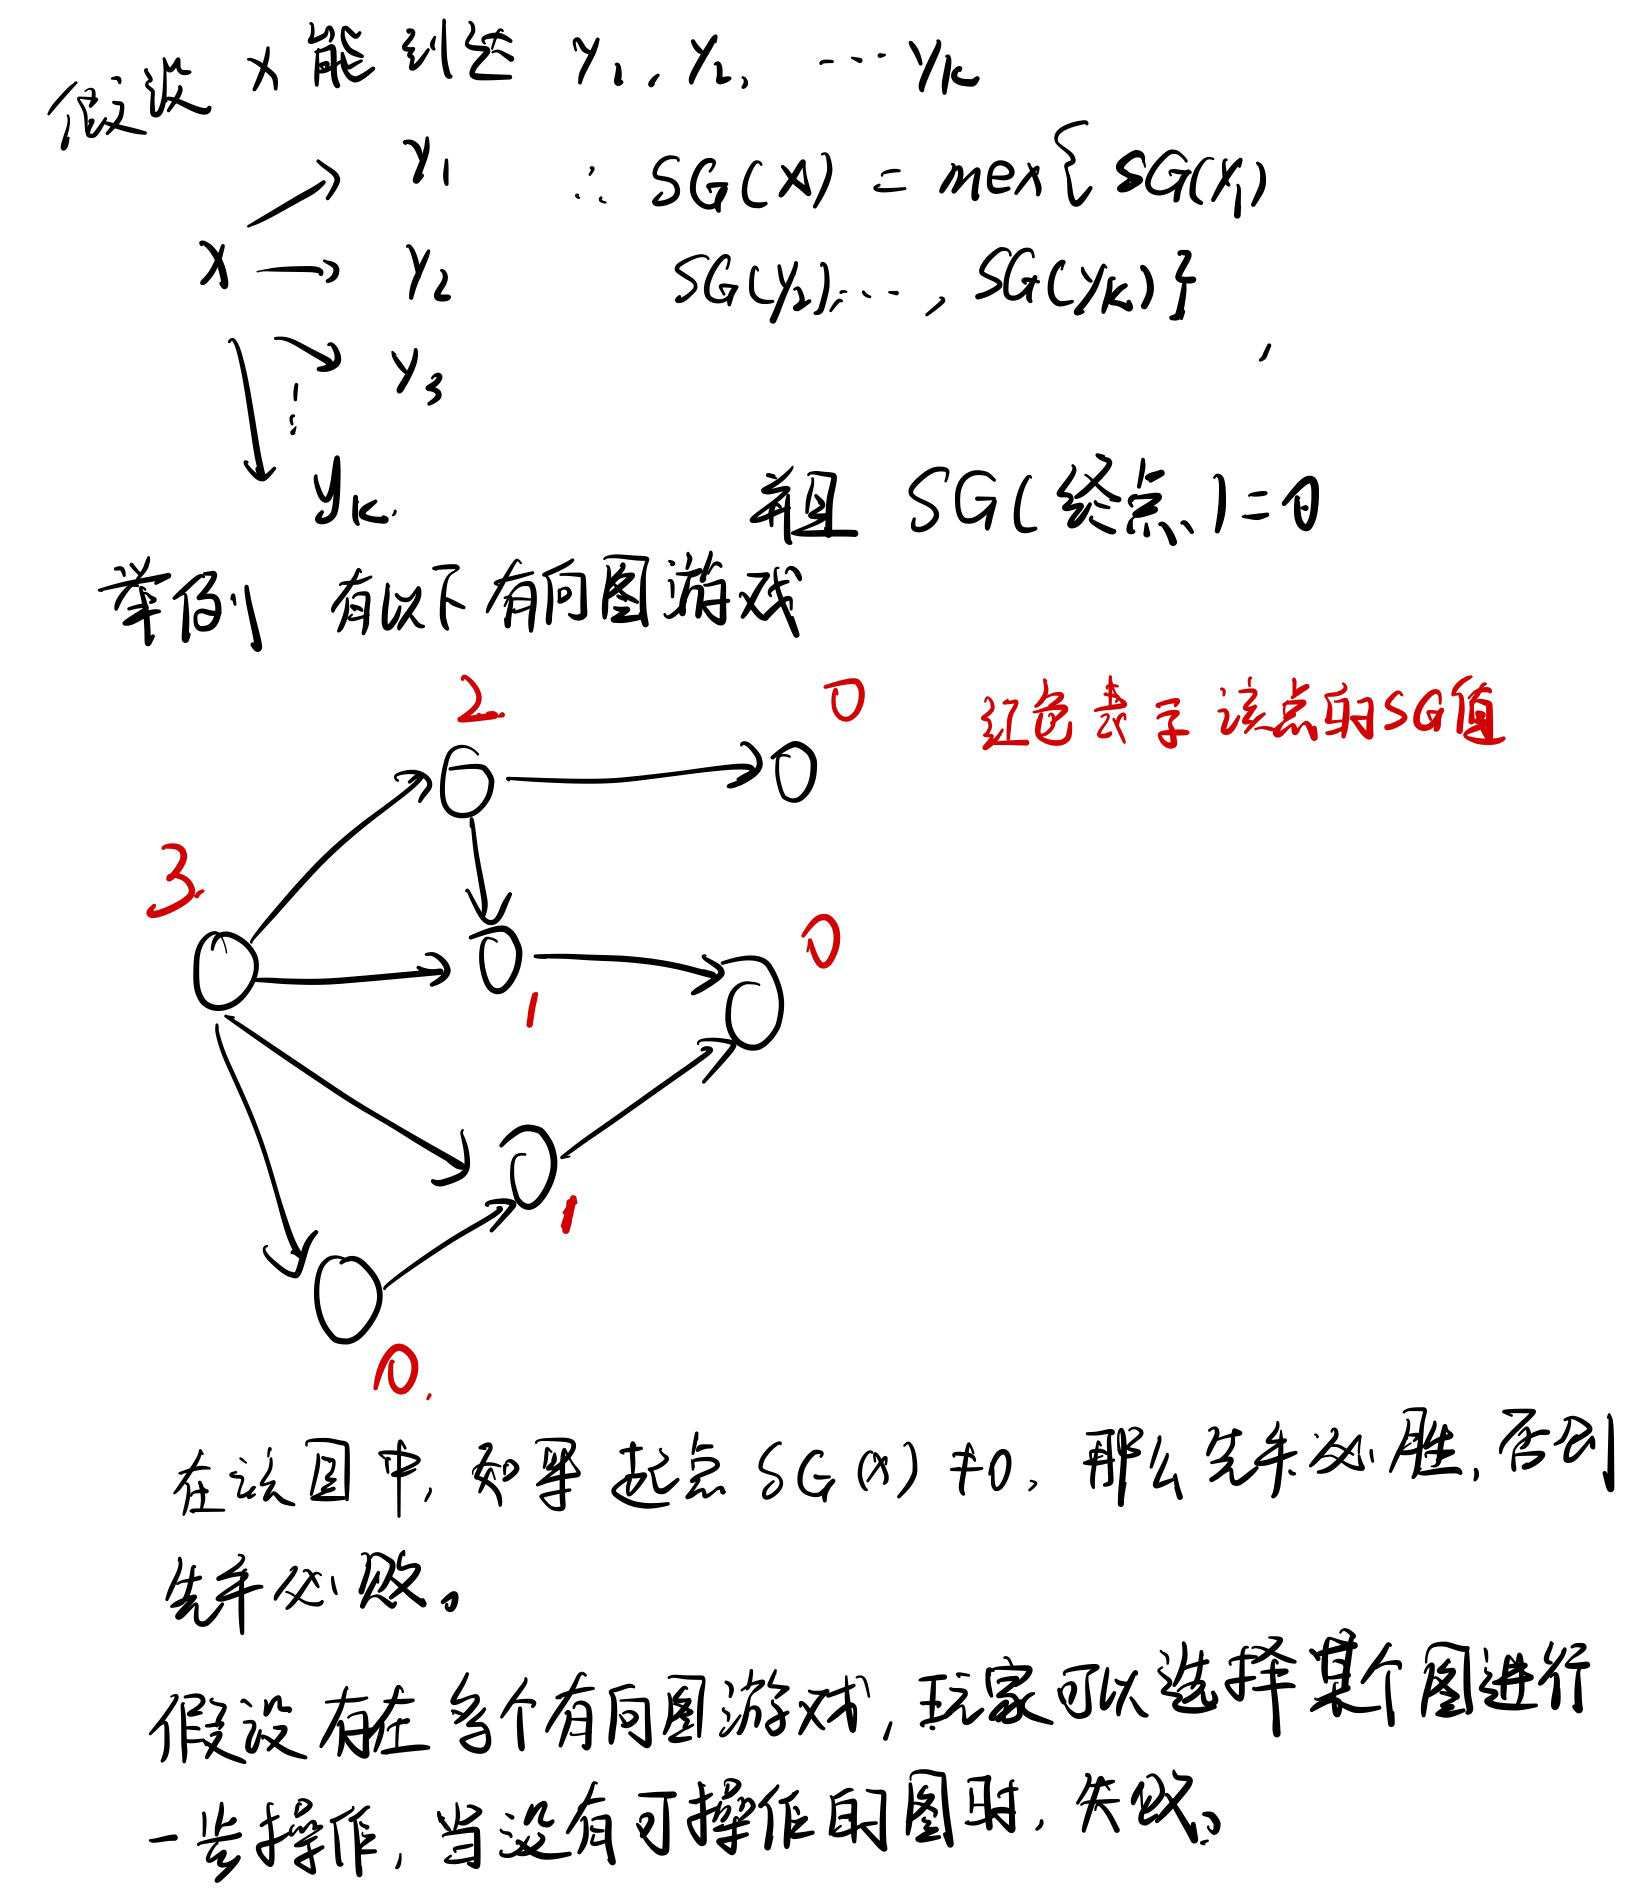 假设 x 能到达 y₁, y₂, … yₖ
y₁ ∴ SG(x) = mex{ SG(y₁)
x y₂ SG(y₂), …, SG(yₖ)}
y₃
⋮
yₖ. 并且 SG(终点)=0
举例 有以下有向图游戏
2 0 红色表示该点的SG值
3.
0
1
1
0.
在该图中, 如果起点 SG(x)≠0, 那么先手必胜, 否则
先手必败。
假设存在多个有向图游戏, 玩家可以选择某个图进行
一步操作, 当没有可操作的图时, 失败。